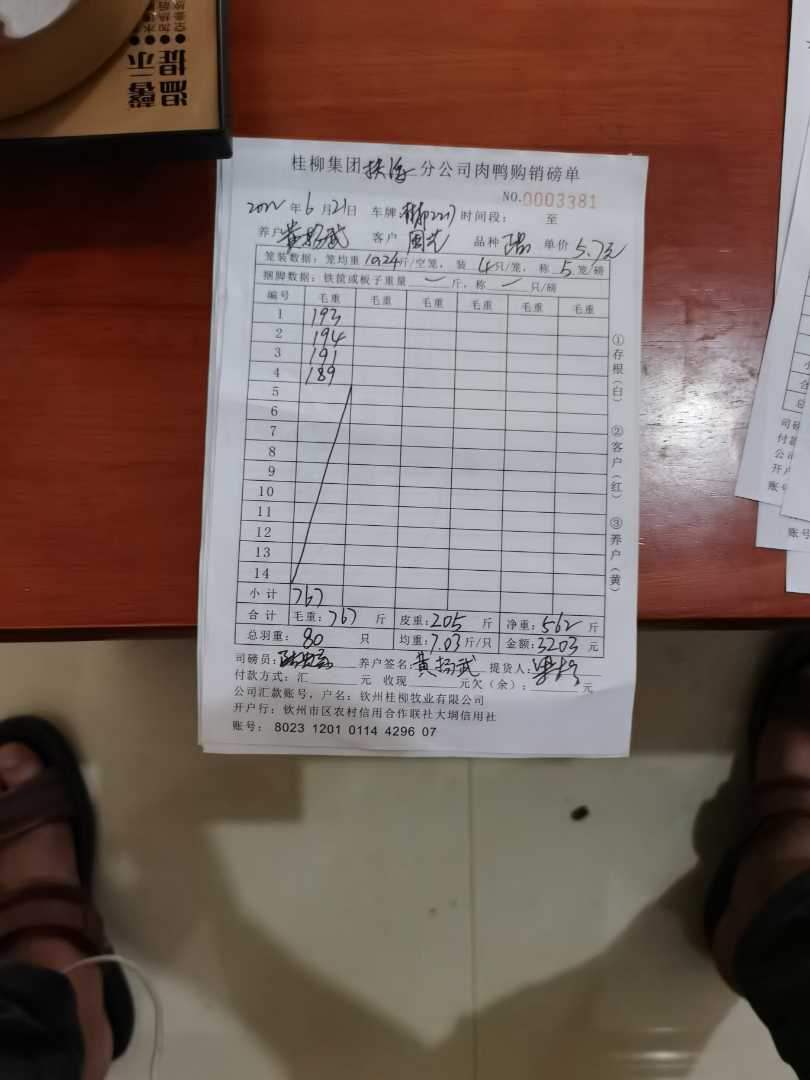 温馨提示
桂柳集团 扶海 分公司肉鸭购销磅单
NO.0003381
2022年6月21日 车牌: 时间段: 至
养户 黄扬武 客户 品种 单价 5.7元
笼装数据: 笼均重 10.24斤/空笼, 装 4只/笼, 称 5笼/磅
捆脚数据: 铁筐或板子重量 斤, 称 只/磅
编号 毛重 毛重 毛重 毛重 毛重 毛重
1 193
2 194
3 191
4 189
5
6
7
8
9
10
11
12
13
14
小计 767
合计 毛重: 767 斤 皮重: 205 斤 净重: 562 斤
总羽重: 80 只 均重: 7.03斤/只 金额: 3203 元
司磅员: 养户签名: 黄扬武 提货人:
付款方式: 汇 元 收现 元欠(余): 元
公司汇款账号, 户名: 钦州桂柳牧业有限公司
开户行: 钦州市区农村信用合作联社大垌信用社
账号: 8023 1201 0114 4296 07
①存根(白) ②客户(红) ③养户(黄)
司磅
付款
公司
开户
账号
账号